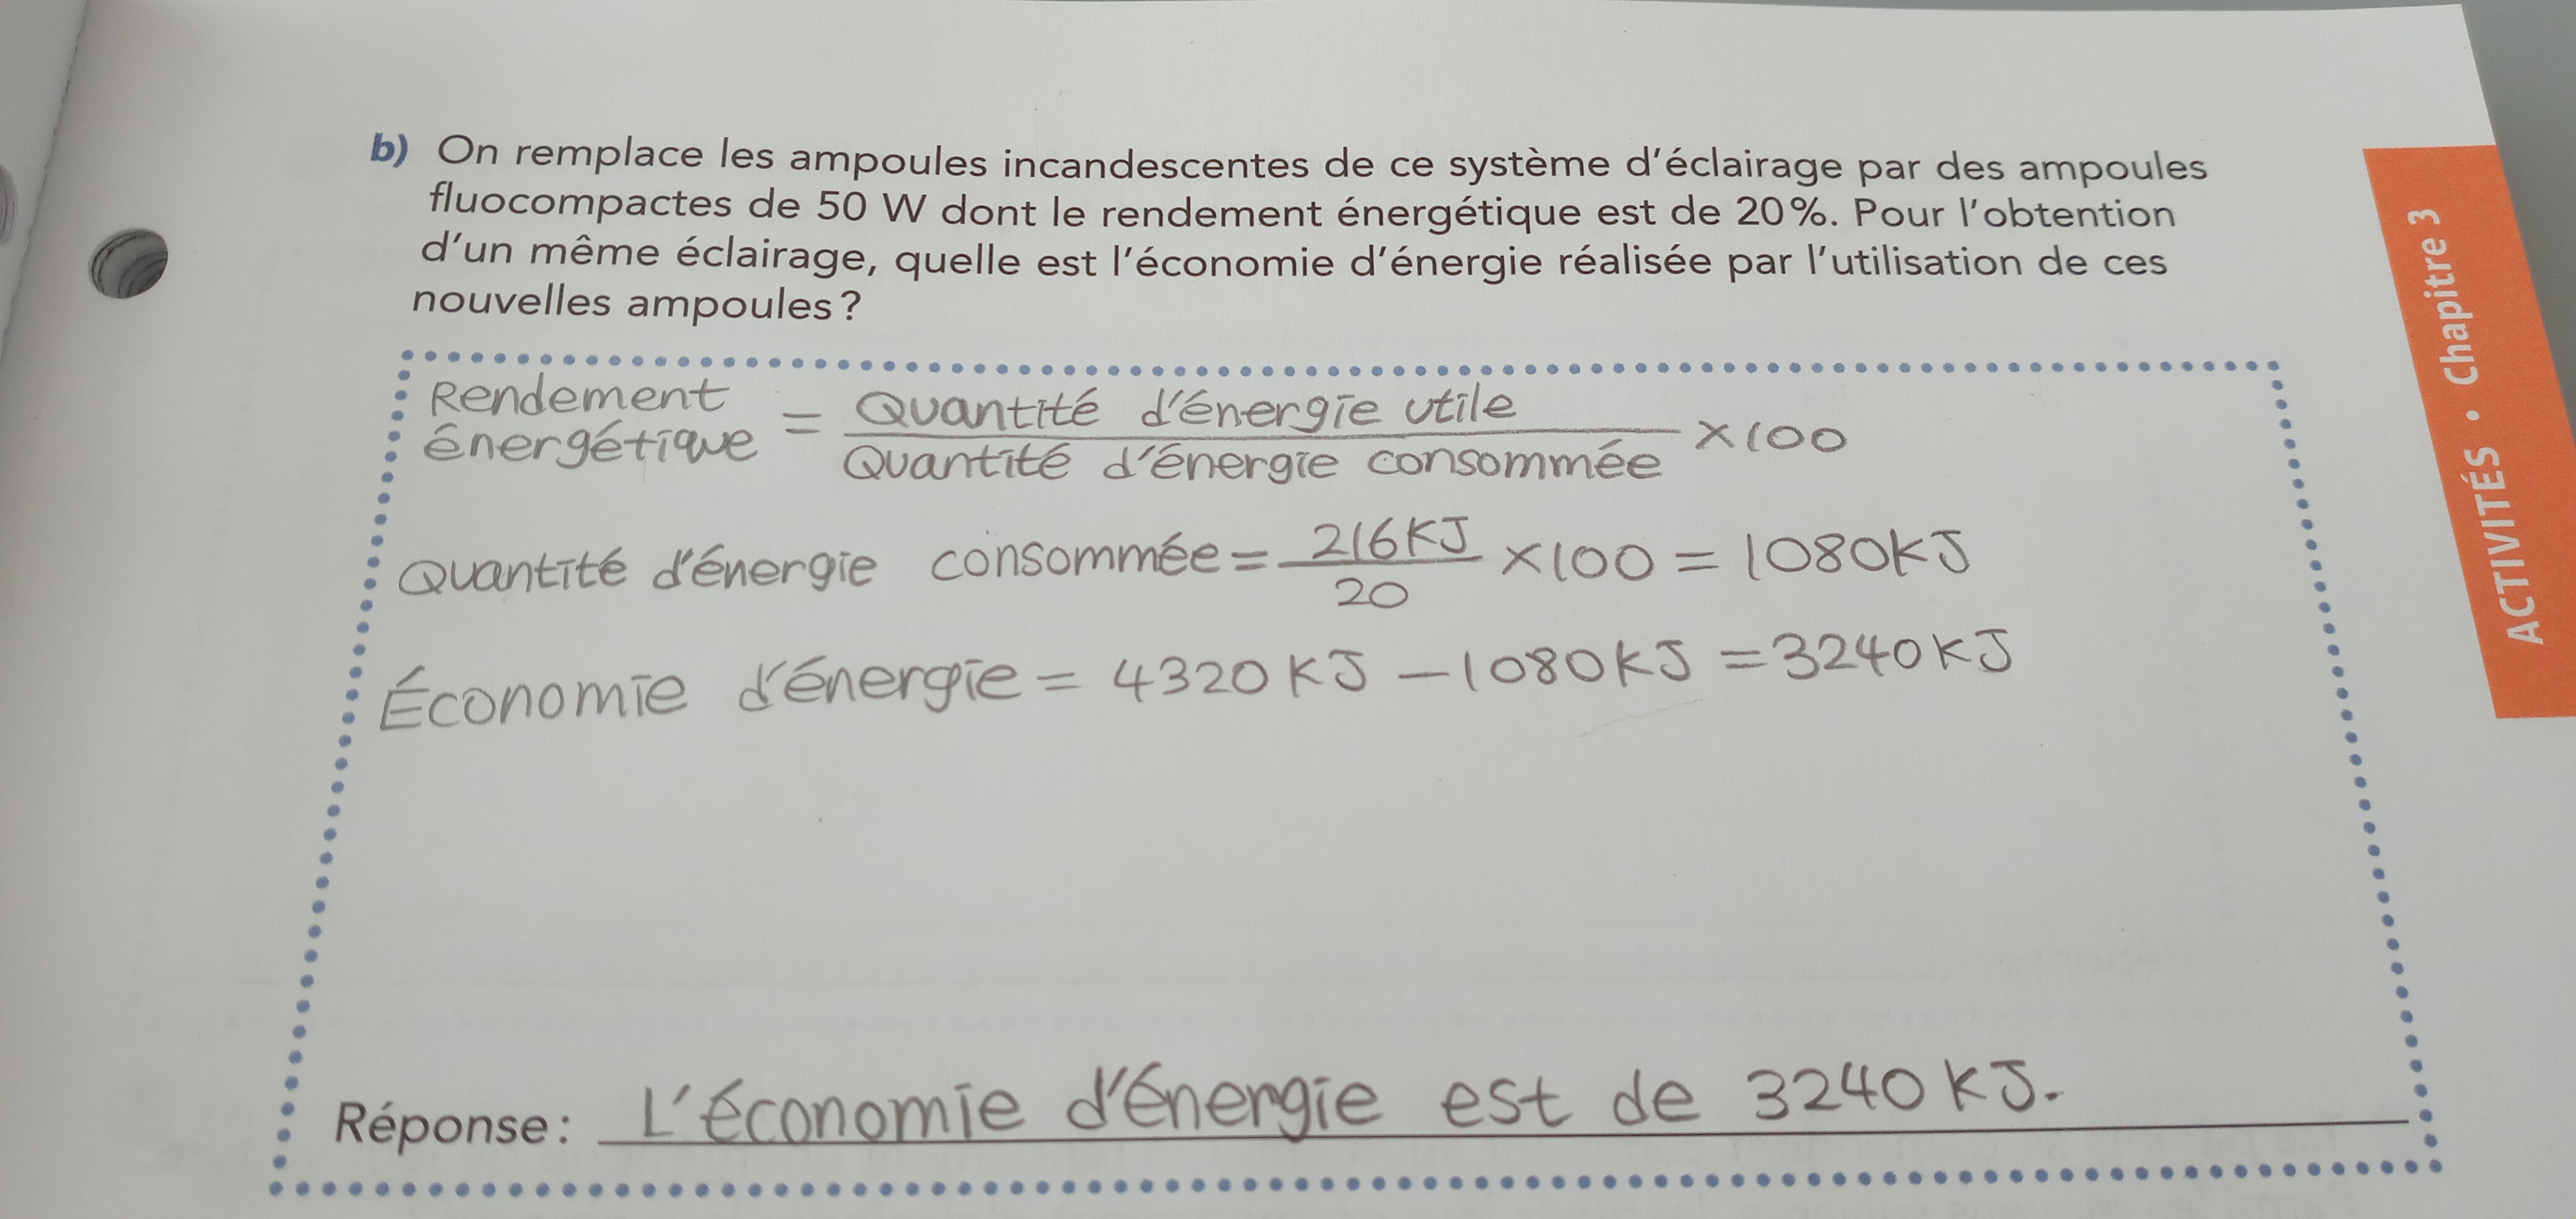 b) On remplace les ampoules incandescentes de ce système d'éclairage par des ampoules
fluocompactes de 50 W dont le rendement énergétique est de 20 %. Pour l'obtention
d'un même éclairage, quelle est l'économie d'énergie réalisée par l'utilisation de ces
nouvelles ampoules ?
Rendement énergétique = Quantité d'énergie utile / Quantité d'énergie consommée × 100
Quantité d'énergie consommée = 216 KJ / 20 × 100 = 1080 KJ
Économie d'énergie = 4320 KJ - 1080 KJ = 3240 KJ
Réponse : L'économie d'énergie est de 3240 KJ.
ACTIVITÉS • Chapitre 3